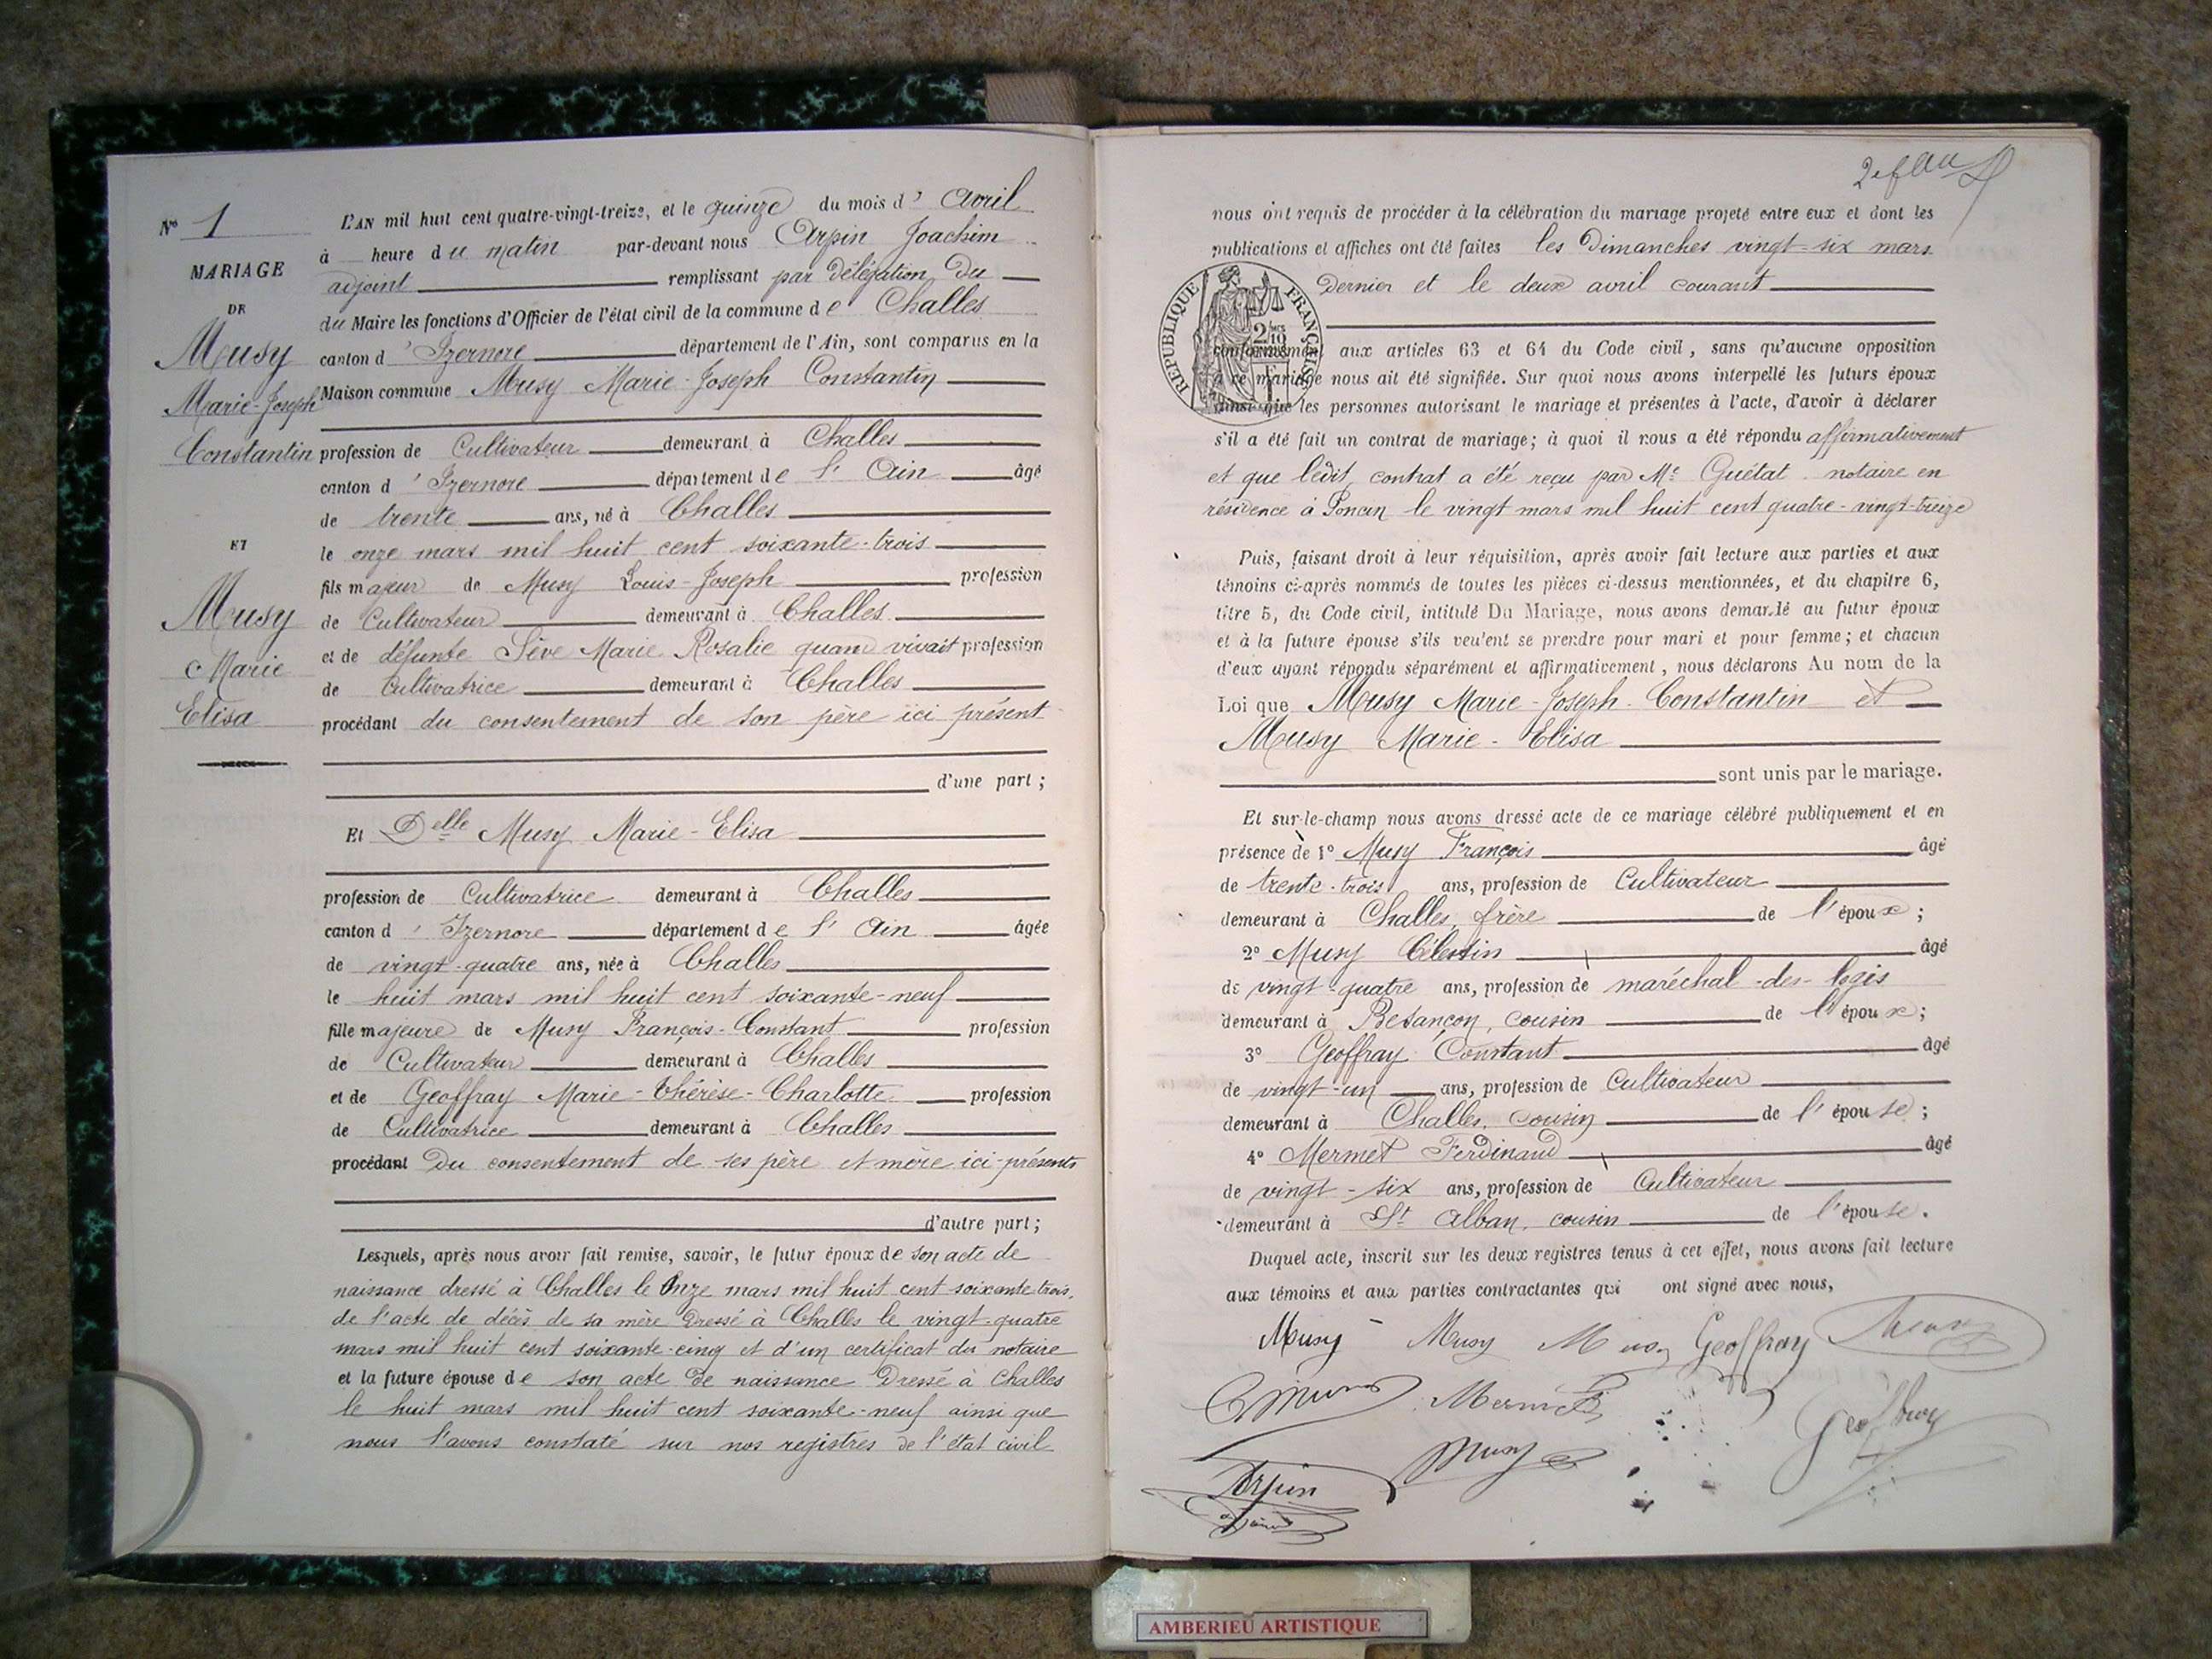 Nos 1
MARIAGE
DE
Musy
Marie-Joseph
Constantin
ET
Musy
Marie
Elisa
L'AN mil huit cent quatre-vingt-treize, et le quinze du mois d' Avril
à heure du matin par-devant nous Arpin Joachim
adjoint remplissant par délégation du
du Maire les fonctions d'Officier de l'état civil de la commune de Challes
canton d'Izernore département de l'Ain, sont comparus en la
Maison commune Musy Marie-Joseph Constantin
profession de Cultivateur demeurant à Challes
canton d'Izernore département de l'Ain âgé
de trente ans, né à Challes
le onze mars mil huit cent soixante-trois
fils majeur de Musy Louis-Joseph profession
de Cultivateur demeurant à Challes
et de défunte Sève Marie Rosalie quand vivait profession
de Cultivatrice demeurant à Challes
procédant du consentement de son père ici présent
d'une part ;
Et Delle Musy Marie-Elisa
profession de Cultivatrice demeurant à Challes
canton d'Izernore département de l'Ain âgée
de vingt-quatre ans, née à Challes
le huit mars mil huit cent soixante-neuf
fille majeure de Musy François-Constant profession
de Cultivateur demeurant à Challes
et de Geoffray Marie-Thérèse-Charlotte profession
de Cultivatrice demeurant à Challes
procédant du consentement de ses père et mère ici-présents
d'autre part ;
Lesquels, après nous avoir fait remise, savoir, le futur époux de son acte de
naissance dressé à Challes le Onze mars mil huit cent soixante trois,
de l'acte de décès de sa mère dressé à Challes le vingt-quatre
mars mil huit cent soixante-cinq et d'un certificat du notaire
et la future épouse de son acte de naissance dressé à Challes
le huit mars mil huit cent soixante-neuf ainsi que
nous l'avons constaté sur nos registres de l'état civil
nous ont requis de procéder à la célébration du mariage projeté entre eux et dont les
publications et affiches ont été faites les Dimanches vingt-six mars
dernier et le deux avril courant
REPUBLIQUE FRANÇAISE
conformément aux articles 63 et 64 du Code civil, sans qu'aucune opposition
à ce mariage nous ait été signifiée. Sur quoi nous avons interpellé les futurs époux
ainsi que les personnes autorisant le mariage et présentes à l'acte, d'avoir à déclarer
s'il a été fait un contrat de mariage ; à quoi il nous a été répondu affirmativement
et que ledit contrat a été reçu par Me Guétat notaire en
résidence à Poncin le vingt mars mil huit cent quatre-vingt-treize
Puis, faisant droit à leur réquisition, après avoir fait lecture aux parties et aux
témoins ci-après nommés de toutes les pièces ci-dessus mentionnées, et du chapitre 6,
titre 5, du Code civil, intitulé Du Mariage, nous avons demandé au futur époux
et à la future épouse s'ils veulent se prendre pour mari et pour femme ; et chacun
d'eux ayant répondu séparément et affirmativement, nous déclarons Au nom de la
Loi que Musy Marie-Joseph-Constantin et
Musy Marie-Elisa
sont unis par le mariage.
Et sur-le-champ nous avons dressé acte de ce mariage célébré publiquement et en
présence de 1° Musy François âgé
de trente-trois ans, profession de Cultivateur
demeurant à Challes, frère de l'époux ;
2° Musy Célestin âgé
de vingt-quatre ans, profession de maréchal-des-logis
demeurant à Besançon, cousin de l'époux ;
3° Geoffray Constant âgé
de vingt-un ans, profession de Cultivateur
demeurant à Challes, cousin de l'épouse ;
4° Mermet Ferdinand âgé
de vingt-six ans, profession de Cultivateur
demeurant à St Alban, cousin de l'épouse.
Duquel acte, inscrit sur les deux registres tenus à cet effet, nous avons fait lecture
aux témoins et aux parties contractantes qui ont signé avec nous,
Musy Musy Musy Geoffray
Mermet
Musy Geoffray
Arpin
AMBERIEU ARTISTIQUE